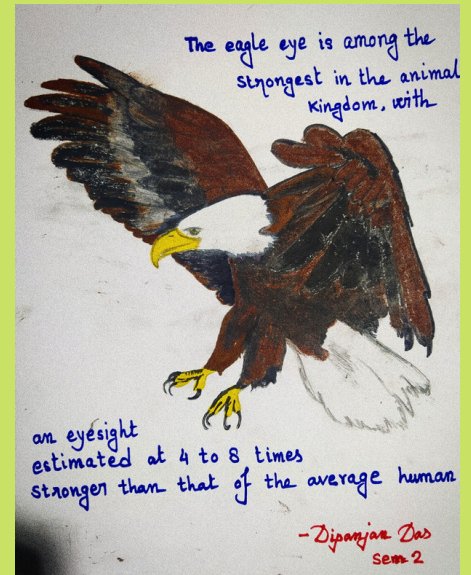 The eagle eye is among the
strongest in the animal
kingdom, with
an eyesight
estimated at 4 to 8 times
stronger than that of the average human
- Dipanjan Das
Sem 2